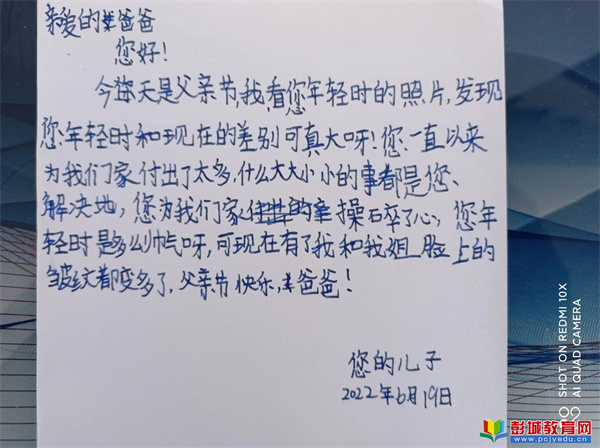 亲爱的爸爸
您好！
今天是父亲节,我看您年轻时的照片,发现
您年轻时和现在的差别可真大呀!您一直以来
为我们家付出了太多,什么大大小小的事都是您、
解决地,您为我们家操碎了心,您年
轻时是多么帅气呀,可现在有了我和我姐脸上的
皱纹都变多了,父亲节快乐,爸爸!
您的儿子
2022年6月19日
SHOT ON REDMI 10X
AI QUAD CAMERA
彭城教育网
www.pcjyedu.cn